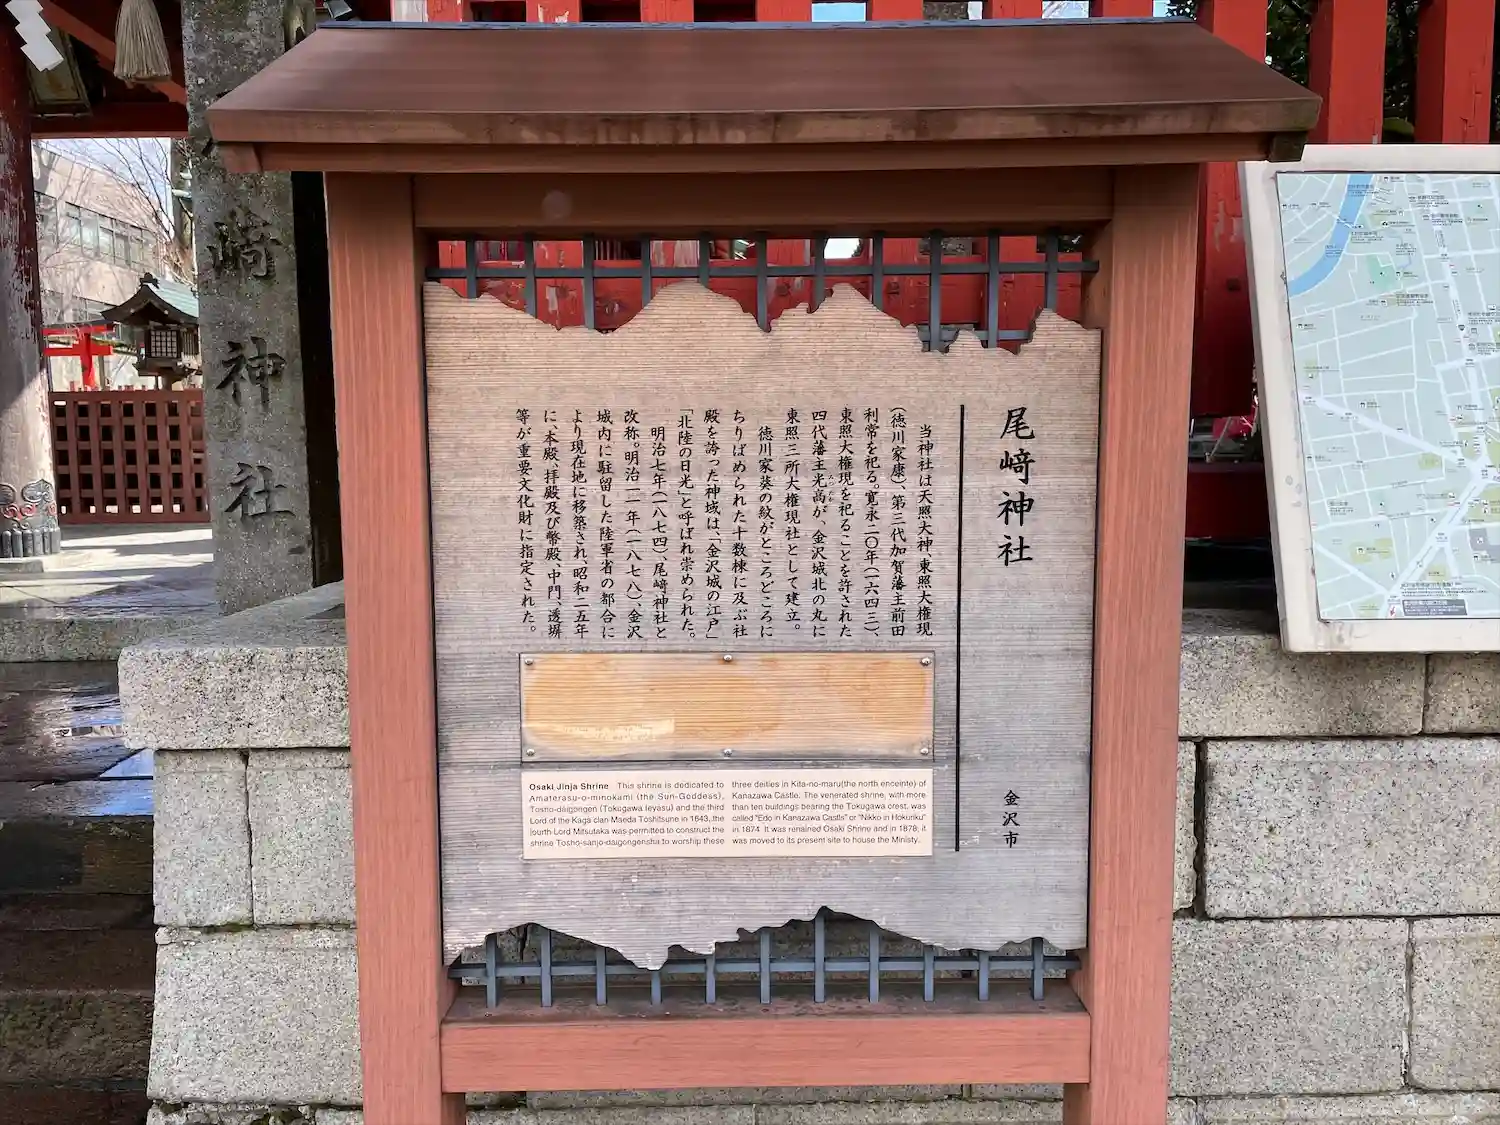 尾﨑神社
当神社は天照大神、東照大権現
(徳川家康)、第三代加賀藩主前田
利常を祀る。寛永二〇年(一六四三)、
東照大権現を祀ることを許された
四代藩主光高が、金沢城北の丸に
東照三所大権現社として建立。
徳川家葵の紋がところどころに
ちりばめられた十数棟に及ぶ社
殿を誇った神域は、「金沢城の江戸」
「北陸の日光」と呼ばれ崇められた。
明治七年(一八七四)、尾﨑神社と
改称。明治一一年(一八七八)、金沢
城内に駐留した陸軍省の都合に
より現在地に移築され、昭和二五年
に、本殿、拝殿及び幣殿、中門、透塀
等が重要文化財に指定された。
金沢市
Osaki Jinja Shrine This shrine is dedicated to
Amaterasu-o-minokami (the Sun-Goddess),
Tosho-daigongen (Tokugawa Ieyasu) and the third
Lord of the Kaga clan Maeda Toshitsune in 1643, the
fourth Lord Mitsutaka was permitted to construct the
shrine Tosho-sanjo-daigongensha to worship these
three deities in Kita-no-maru(the north enceinte) of
Kanazawa Castle. The venerated shrine, with more
than ten buildings bearing the Tokugawa crest, was
called "Edo in Kanazawa Castle" or "Nikko in Hokuriku"
in 1874. It was renained Osaki Shrine and in 1878, it
was moved to its present site to house the Ministy..
崎神社